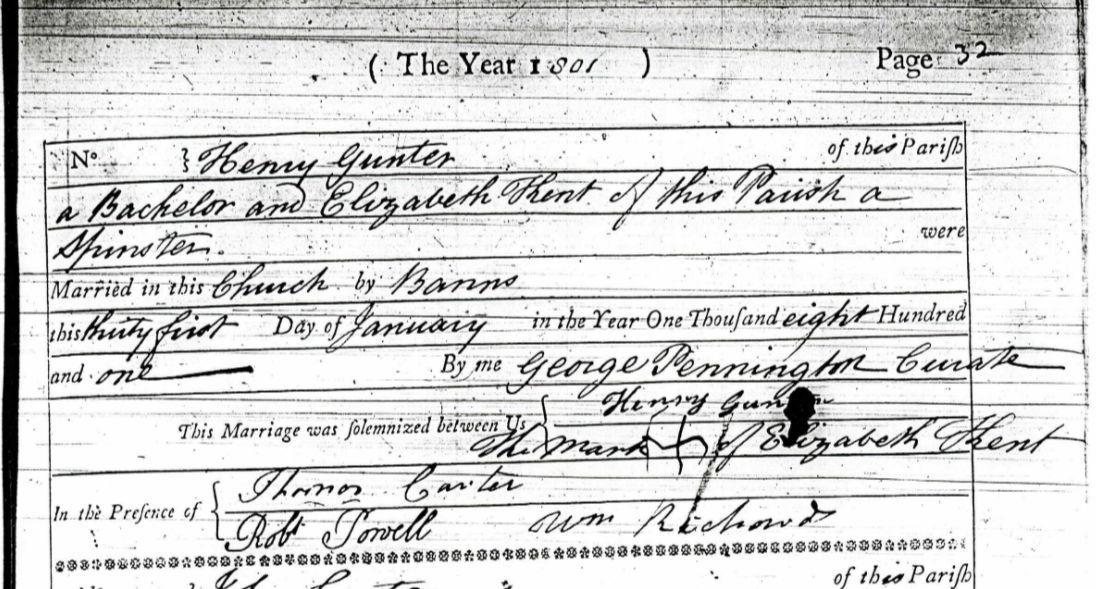 ( The Year 1801 ) Page 32
No } Henry Gunter of this Pariſh
a Bachelor and Elizabeth Kent of this Parish a
Spinster. were
Married in this Church by Banns
this thirty first Day of January in the Year One Thouſand eight Hundred
and one By me George Pennington Curate
This Marriage was ſolemnized between Us { Henry Gunter
The mark of Elizabeth Kent
In the Preſence of { Thomas Carter
Robt Powell Wm Richards
of this Pariſh